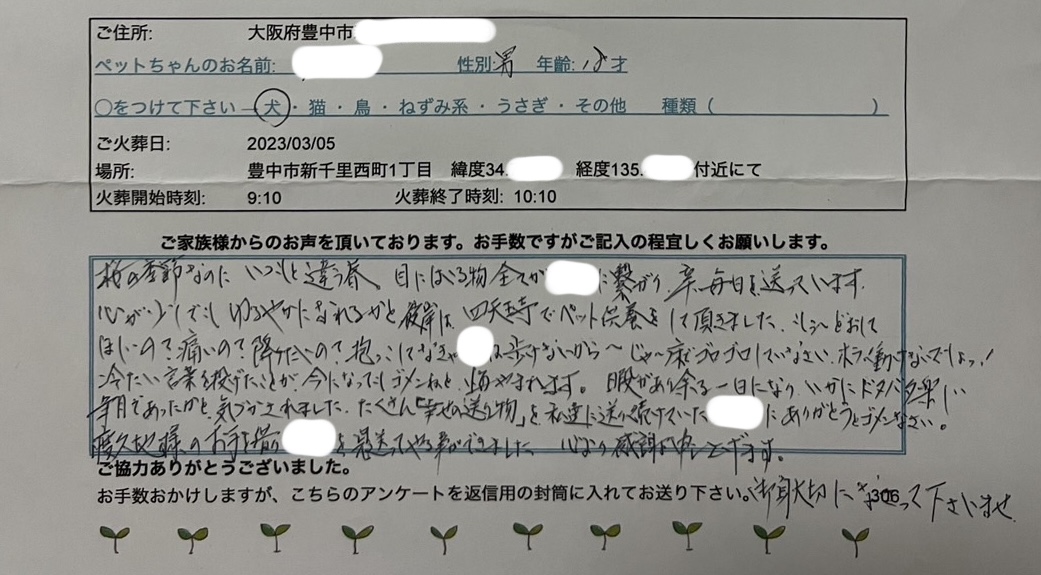 ご住所: 大阪府豊中市
ペットちゃんのお名前: 性別:男 年齢: 才
○をつけて下さい―犬・猫・鳥・ねずみ系・うさぎ・その他 種類( )
ご火葬日: 2023/03/05
場所: 豊中市新千里西町1丁目 緯度34. 経度135. 付近にて
火葬開始時刻: 9:10 火葬終了時刻: 10:10
ご家族様からのお声を頂いております。お手数ですがご記入の程宜しくお願いします。
桜の季節なのに いつもと違う春。目にはいる物全てが に繋がり、辛い毎日を送っています。
心が少しでもゆるやかになれるかと 四天王寺でペット供養をして頂きました。
ほしいの?痛いの?降りたいの?抱っこしてなきゃ は歩けないから〜じゃ〜床でゴロゴロしていなさい。ホラ動けないでしょっ!
冷たい言葉を投げたことが 今になってもゴメンねと 悔やまれます。暇があり余る一日になり、いかにドタバタ楽しい
年月であったかと気づかされました。たくさん「幸せの送り物」を私達に送り続けていた にありがとうとゴメンなさい。
様のお手を借り を見送ってやる事ができました 心から感謝申し上げます。
ご協力ありがとうございました。
お手数おかけしますが、こちらのアンケートを返信用の封筒に入れてお送り下さい。御身大切になさって下さいませ
306